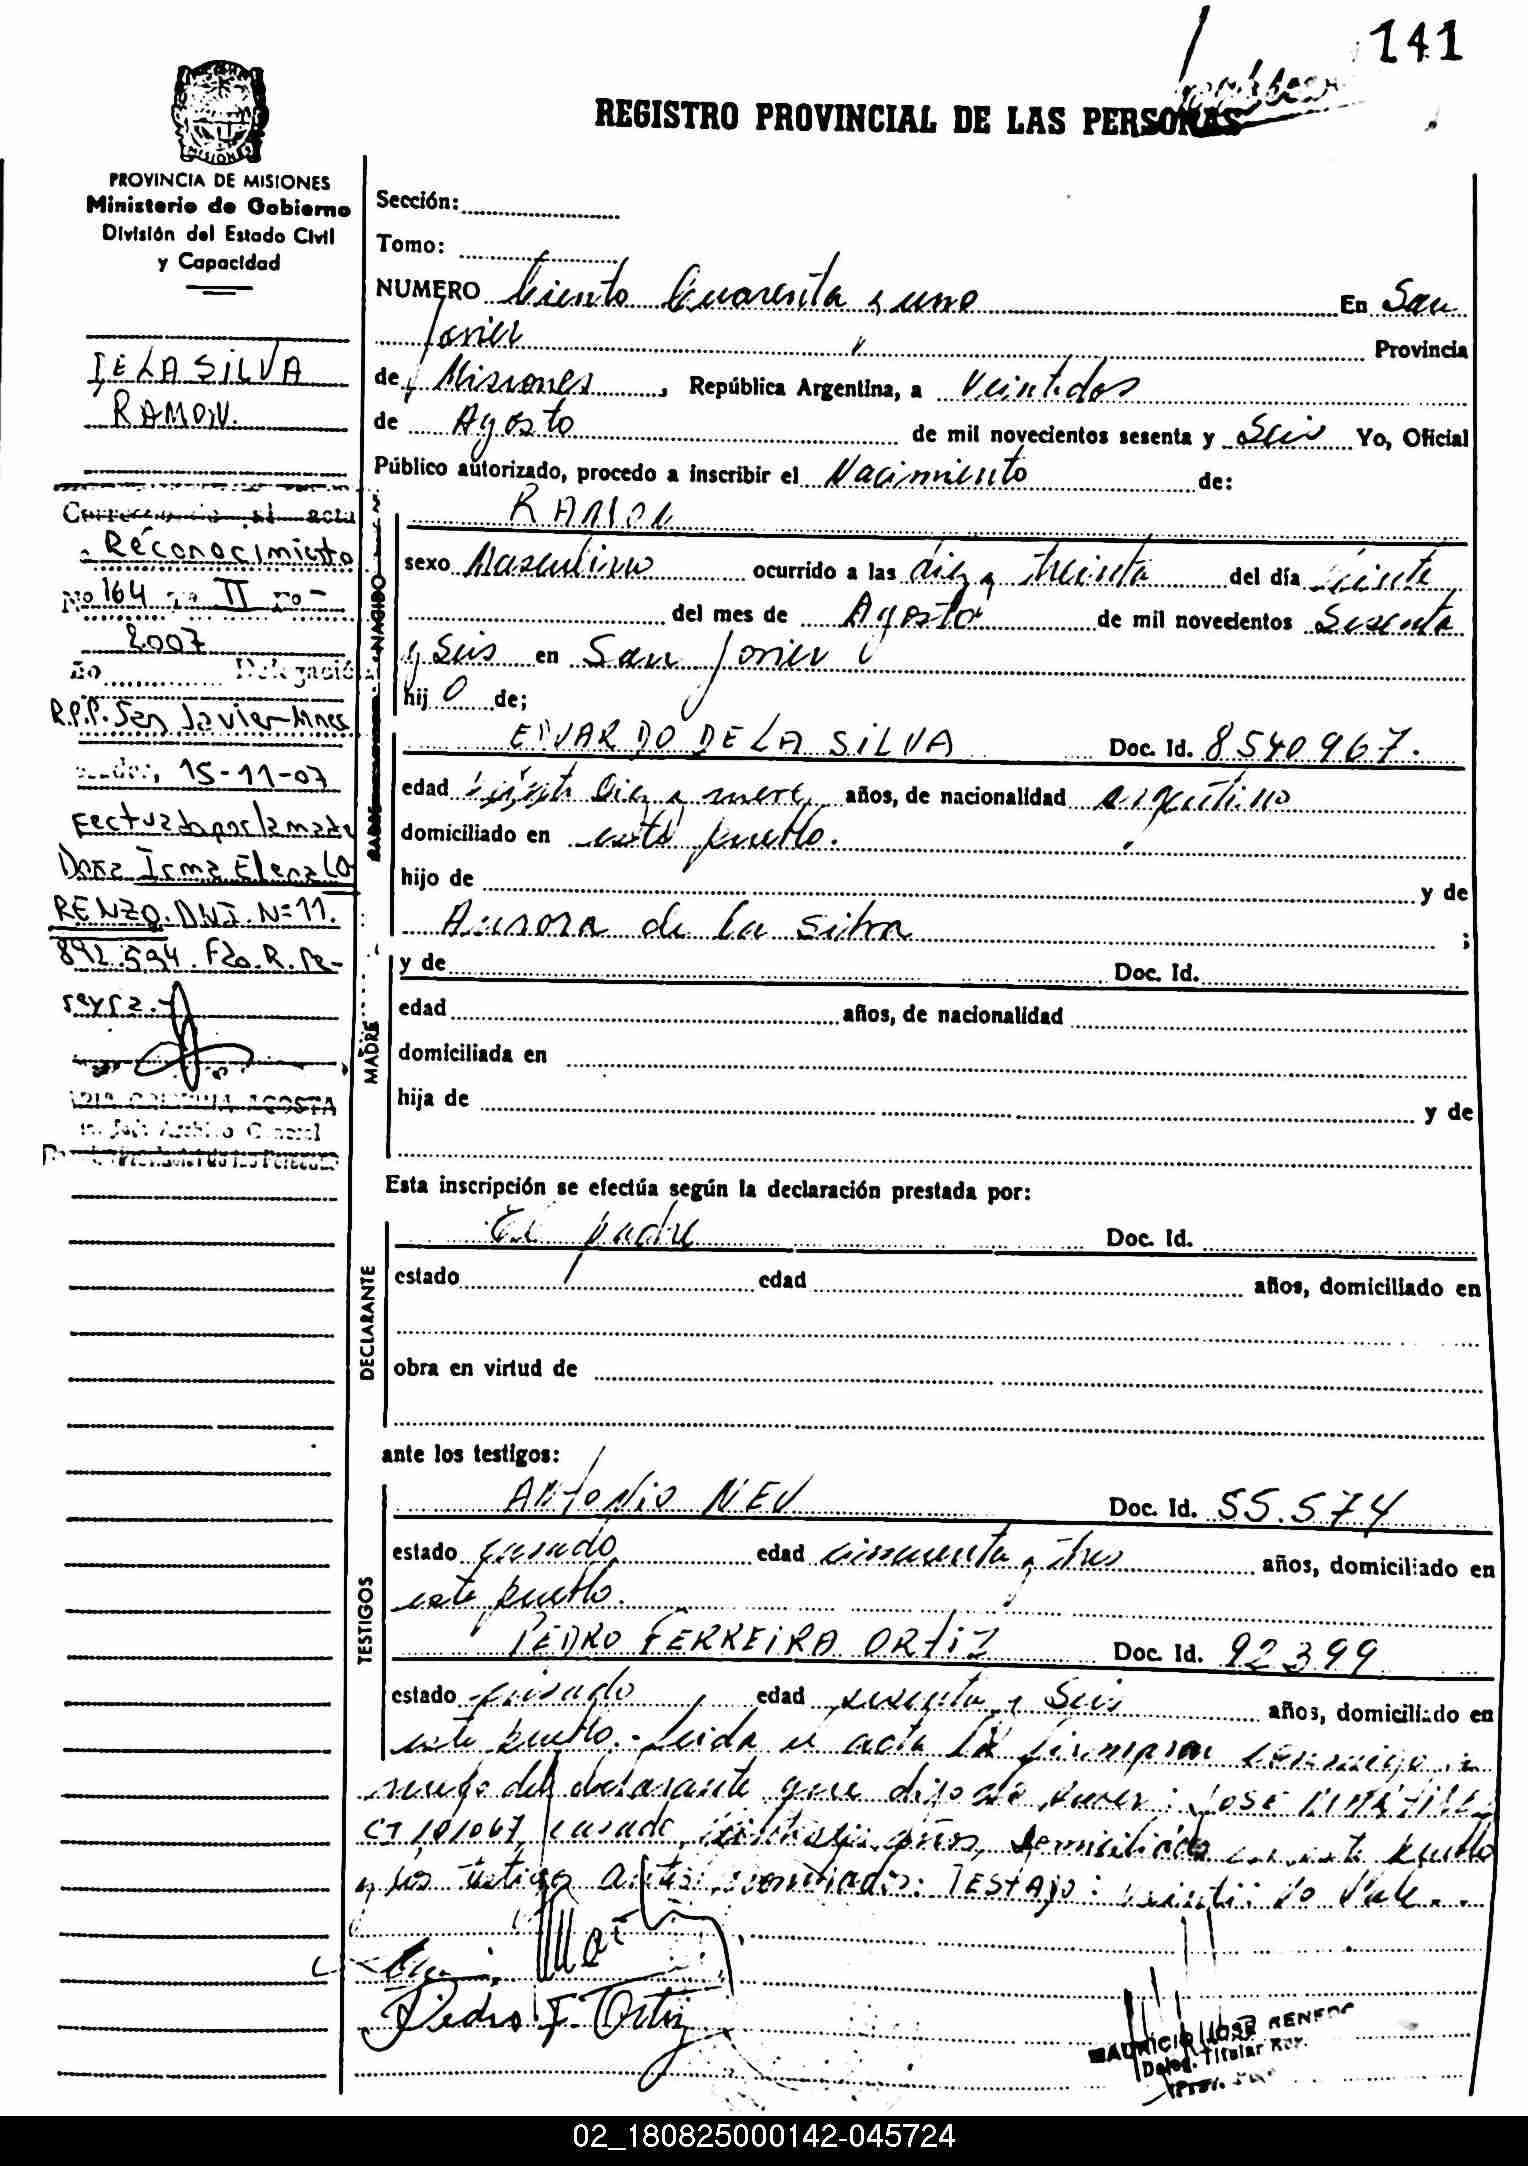 141
REGISTRO PROVINCIAL DE LAS PERSONAS
MISIONES
PROVINCIA DE MISIONES
Ministerio de Gobierno
División del Estado Civil
y Capacidad
DE LA SILVA
RAMON.
Reconocimiento
No 164 II
2007
Delegación
R.P.P. San Javier-Mnes
15-11-07
fectuado por la madre
Doña Irma Elena LO
RENZO. DNI. Nº 11.
892.594. Fdo. R. Pe-
reyra.-
ACOSTA
Sección:
Tomo:
NUMERO Ciento Cuarenta y uno En San
Javier Provincia
de Misiones, República Argentina, a Veintidos
de Agosto de mil novecientos sesenta y Seis Yo, Oficial
Público autorizado, procedo a inscribir el Nacimiento de:
NACIDO
RAMON
sexo Masculino ocurrido a las diez y treinta del día veinte
del mes de Agosto de mil novecientos Sesenta
y Seis en San Javier
hij o de;
PADRE
EDUARDO DE LA SILVA Doc. Id. 8540967.
edad diez y nueve años, de nacionalidad argentino
domiciliado en este pueblo.
hijo de y de
Aurora de la Silva ;
MADRE
y de Doc. Id.
edad años, de nacionalidad
domiciliada en
hija de y de
Esta inscripción se efectúa según la declaración prestada por:
DECLARANTE
El padre Doc. Id.
estado edad años, domiciliado en
obra en virtud de
ante los testigos:
TESTIGOS
ANTONIO NEU Doc. Id. 55.574
estado casado edad cincuenta y tres años, domiciliado en
este pueblo.
PEDRO FERREIRA ORTIZ Doc. Id. 92399
estado casado edad sesenta y Seis años, domiciliado en
este pueblo.- Leida el acta la firmaron conmigo a
ruego del declarante que dijo no saber: JOSE
CI 101067, casado, años, domiciliado en este pueblo
y los testigos antes mencionados: TESTADO: veinti: No Vale.-
Pedro F. Ortiz
MAURICIO JOSE
Deleg. Titular
02_180825000142-045724